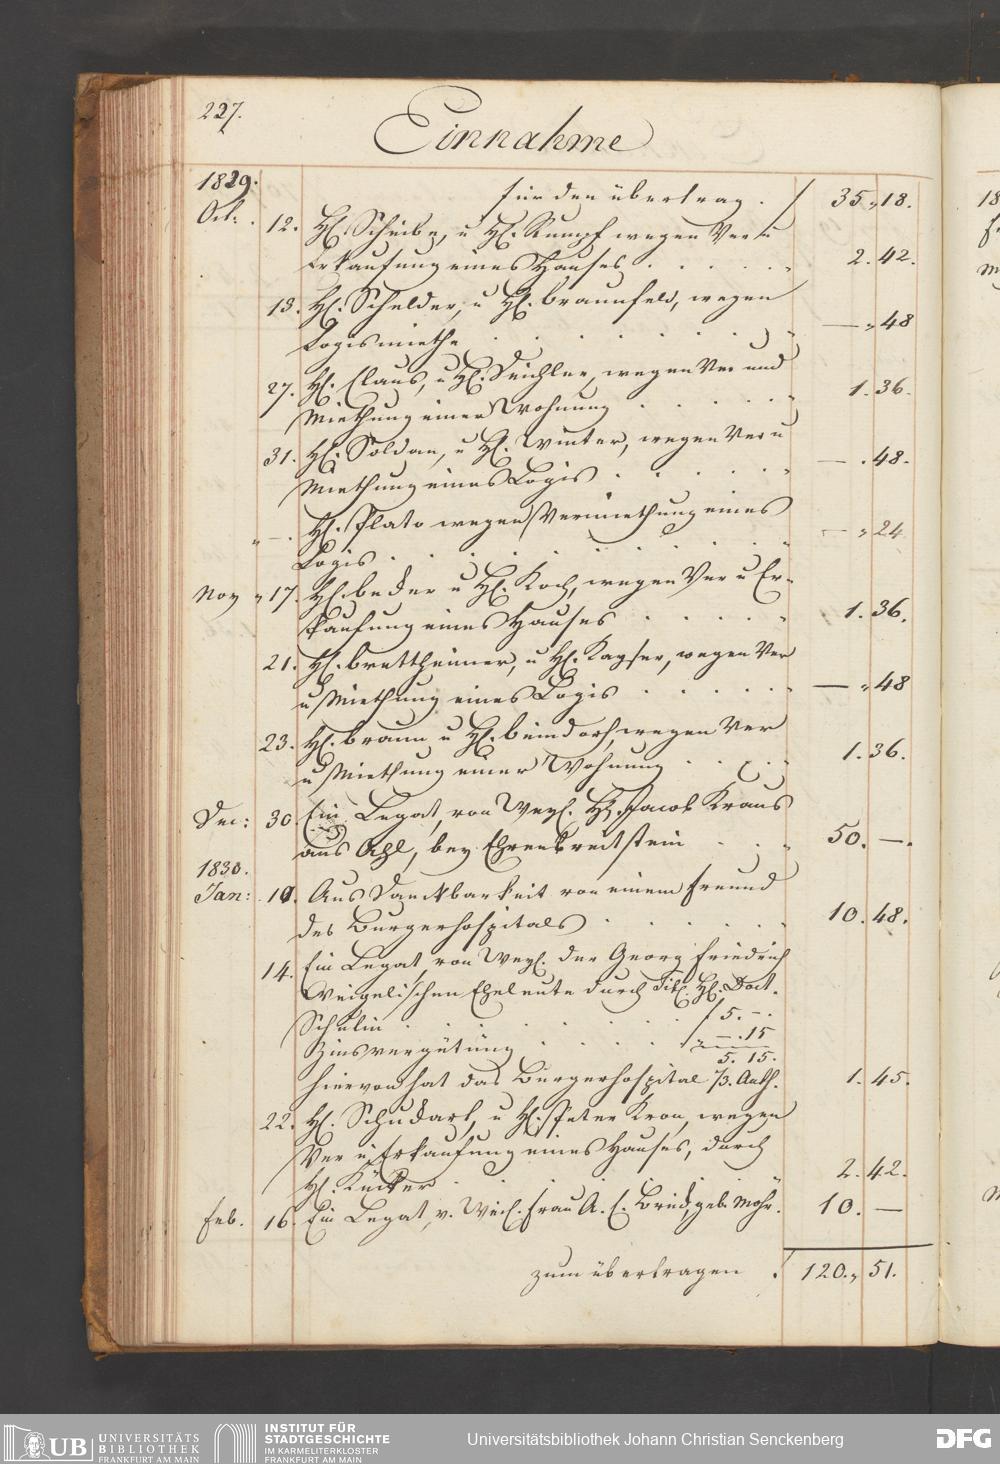 227.
Einnahme
1829.
für den übertrag . f 35 „ 18.
Oct: . 12. H. Scheibe, u H. Rumpf wegen Ver u
Erkaufung eines Hauses . . . . . 2. 42.
13. H. Schelder, u H. braunfels, wegen
Logismiethe . . . . . . — „ 48
27. H. Claus, u H. Deichler, wegen Ver und
Miethung einer Wohnung . . . . 1. 36.
31. H. Soldan, u H. Winter, wegen Ver u
Miethung eines Logis . . . . . — . 48.
„ — . H. Plato wegen Vermiethung eines
Logis . . . . . . . — „ 24
Nov „ 17. H. beder u H. Koch, wegen Ver u Er-
kaufung eines Hauses . . . . . 1. 36.
21. H. brettheimer, u H. Kayser, wegen Ver
u Miethung eines Logis . . . . . — „ 48
23. H. braun u H. beindorf, wegen Ver
u Miethung einer Wohnung . . . . 1. 36.
Dec: 30. Ein Legat, von Weyl. H. Jacob Kraus
aus Ahl, bey Ehrenbreitstein . . . 50. — .
1830.
Jan: . 10. Aus Danckbarkeit von einem freund
des Burgerhospitals . . . . . 10. 48.
14. Ein Legat, von Weyl. der Georg Friedrich
Weigelischen Eheleute durch Tit. H. Doct.
Schulin . . . . . . f 5. – .
Zinsvergütung . . . . . „ — . 15
5. 15.
hiervon hat das Burgerhospital 1/3. Anth. 1. 45.
22. H. Schudark, u H. Peter Kron, wegen
Ver u Erkaufung eines Hauses, durch
H. Kücker . . . . . . 2. 42.
Feb. 16. Ein Legat, v. Weil. Frau A. C. geb. Mohr. 10. —
zum übertragen . f 120. „ 51.
UB UNIVERSITÄTS
BIBLIOTHEK
FRANKFURT AM MAIN
INSTITUT FÜR
STADTGESCHICHTE
IM KARMELITERKLOSTER
FRANKFURT AM MAIN
Universitätsbibliothek Johann Christian Senckenberg
DFG